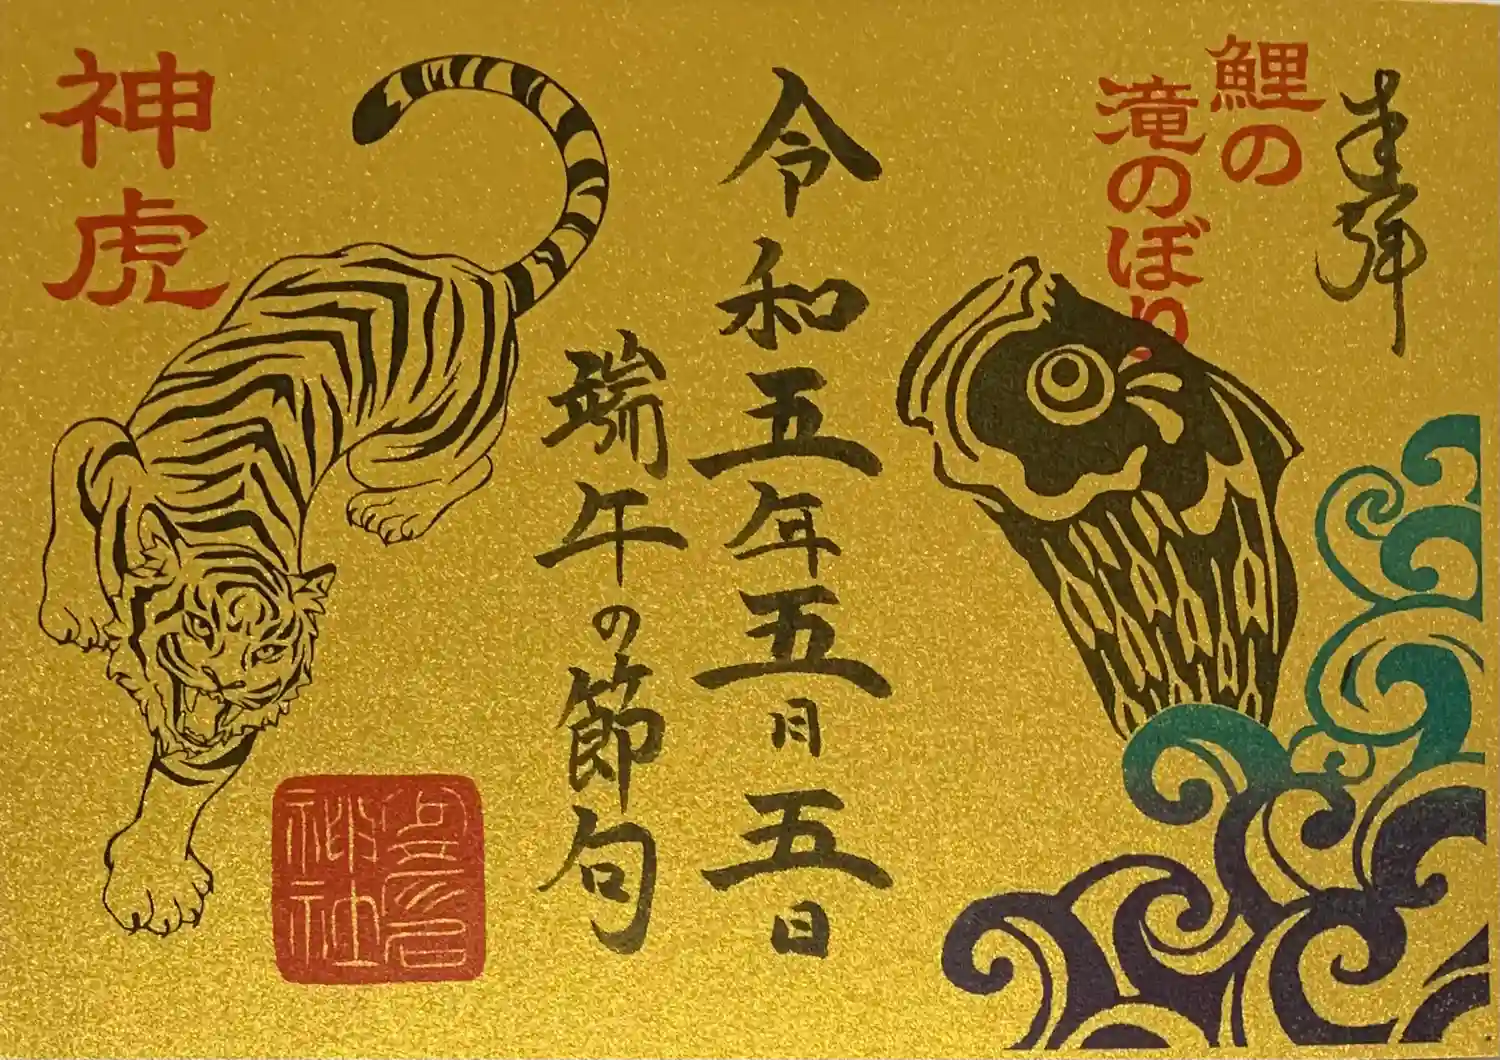 奉拝
鯉の
滝のぼり
令和五年五月五日
端午の節句
神虎
神社